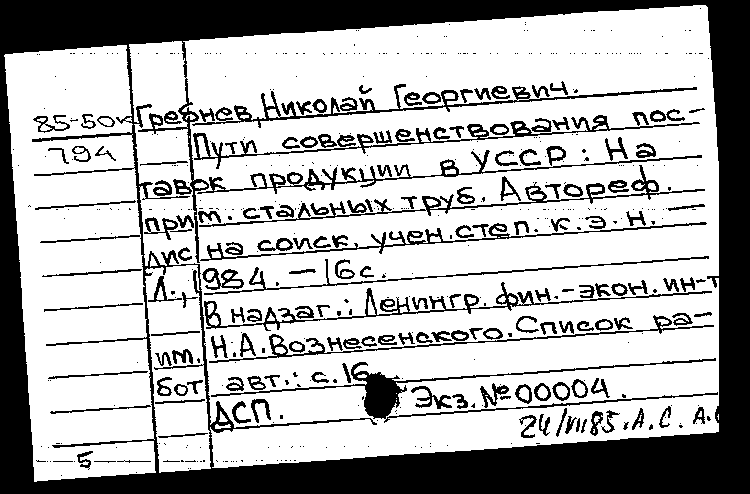 85-50к Гребнев, Николай Георгиевич.
794 Пути совершенствования пос-
тавок продукции в УССР: На
прим. стальных труб. Автореф.
дис на соиск. учен. степ. к. э. н. —
Л., 1984. — 16 с.
В надзаг.: Ленингр. фин.-экон. ин-т
им. Н.А. Вознесенского. Список ра-
бот авт.: с. 16
ДСП. Экз. № 00004.
24/VII 85. А. С. А.
5